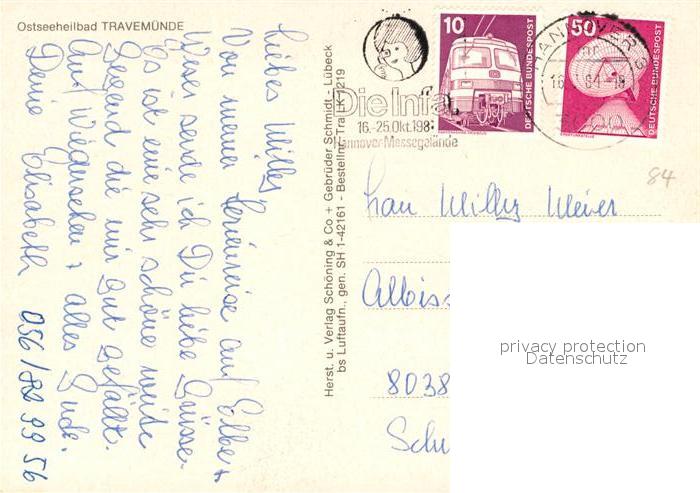 Ostseeheilbad TRAVEMÜNDE
Liebes Milly,
Von meiner Ferienreise auf Elbe +
Weser sende ich Dir liebe Grüsse.
Es ist eine sehr schöne weite
Gegend die mir gut gefällt.
Auf Wiedersehen + alles Gute.
Deine Elisabeth 056/82 99 56
Herst. u. Verlag Schöning & Co + Gebrüder Schmidt - Lübeck
bs Luftaufn., gen. SH 1-42161 - Bestellnr. Tra K 1219
Die Infa
16.-25.Okt.198
Hannover-Messegelände
10
DEUTSCHE BUNDESPOST
50
DEUTSCHE BUNDESPOST
HANNOVER
84
Frau Milly Meier
Albiss
8038
Sch
privacy protection
Datenschutz